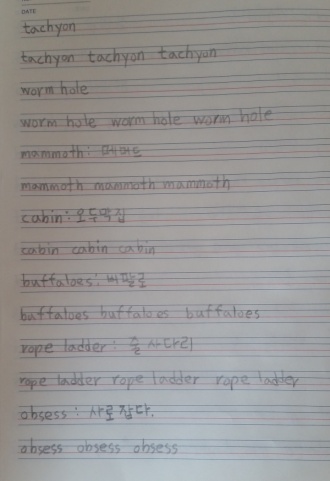 DATE
tachyon
tachyon tachyon tachyon
worm hole
worm hole worm hole worm hole
mammoth : 메머드
mammoth mammoth mammoth
cabin : 오두막집
cabin cabin cabin
buffaloes : 버팔로
buffaloes buffaloes buffaloes
rope ladder : 줄 사다리
rope ladder rope ladder rope ladder
obsess : 사로잡다.
obsess obsess obsess